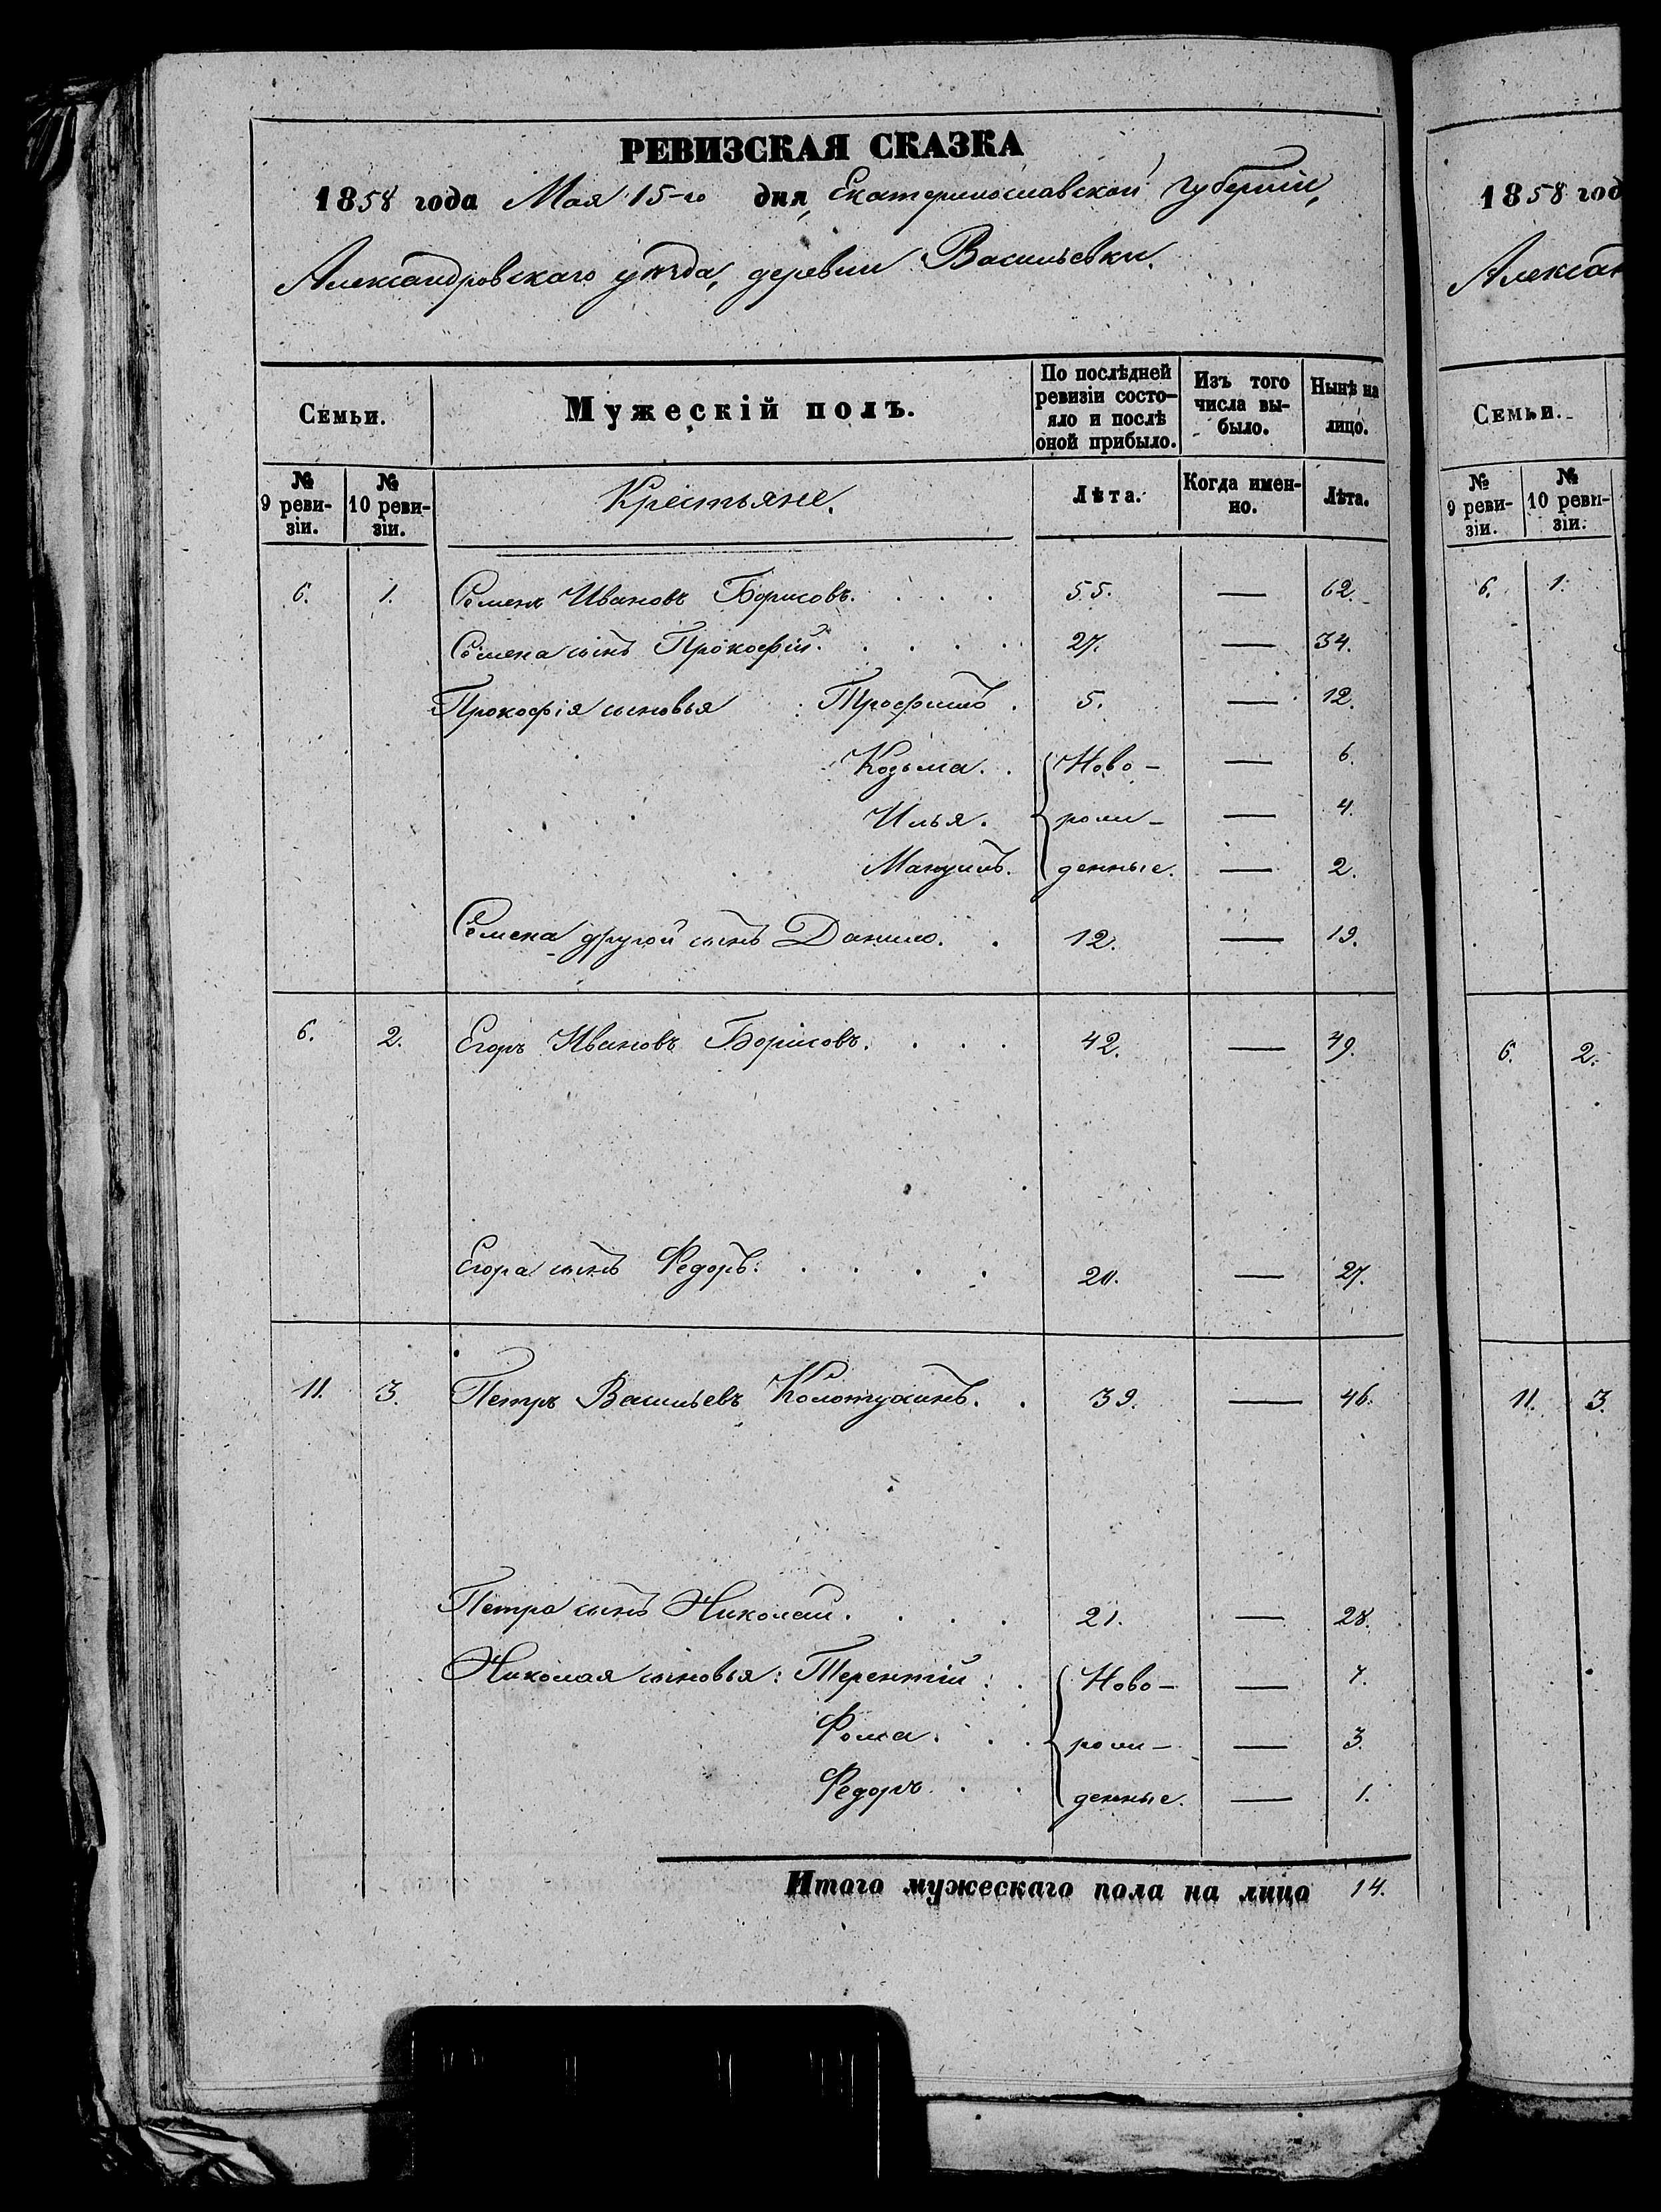 РЕВИЗСКАЯ СКАЗКА
1858 года Мая 15-го дня, Екатеринославской губерніи,
Александровскаго уѣзда, деревни Васильевки.
Семьи.
Мужескій полъ.
По послѣдней ревизіи состояло и послѣ оной прибыло.
Изъ того числа выбыло.
Нынѣ на лицо.
№ 9 ревизіи.
№ 10 ревизіи.
Крестьяне.
Лѣта.
Когда именно.
Лѣта.
6. 1. Семенъ Ивановъ Борисовъ. 55. — 62.
Семена сынъ Прокофій. 27. — 34.
Прокофія сыновья: Трофимъ. 5. — 12.
Козьма. Ново- — 6.
Илья. рож- — 4.
Мануилъ. денные. — 2.
Семена другой сынъ Данило. 12. — 19.
6. 2. Егоръ Ивановъ Борисовъ. 42. — 49.
Егора сынъ Федоръ. 20. — 27.
11. 3. Петръ Васильевъ Колотухинъ. 39. — 46.
Петра сынъ Николай. 21. — 28.
Николая сыновья: Терентій: Ново- — 7.
Фома. рож- — 3.
Федоръ. денные. — 1.
Итого мужескаго пола на лицо 14.
1858 год
Алексан
Семьи.
№ 9 ревизіи.
№ 10 ревизіи.
6. 1.
6. 2.
11. 3.